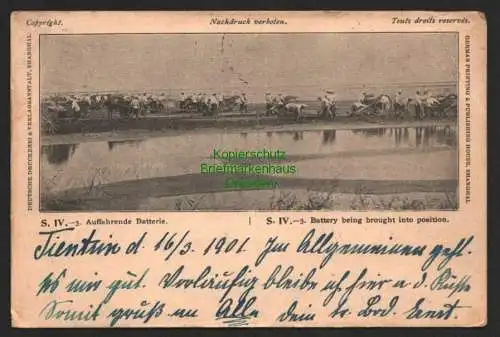 Copyright.
Nachdruck verboten.
Touts droits reservés.
DEUTSCHE DRUCKEREI & VERLAGSANSTALT, SHANGHAI.
GERMAN PRINTING & PUBLISHING HOUSE, SHANGHAI.
Kopierschutz
Briefmarkenhaus
S. IV.—3. Auffahrende Batterie.
S. IV.—3. Battery being brought into position.
Tientsin d. 16/3. 1901. Im Allgemeinen geht
es mir gut. Vorläufig bleibe ich hier a. d. Küste
Somit gruß an Alle dein tr. Brd. Ernst.